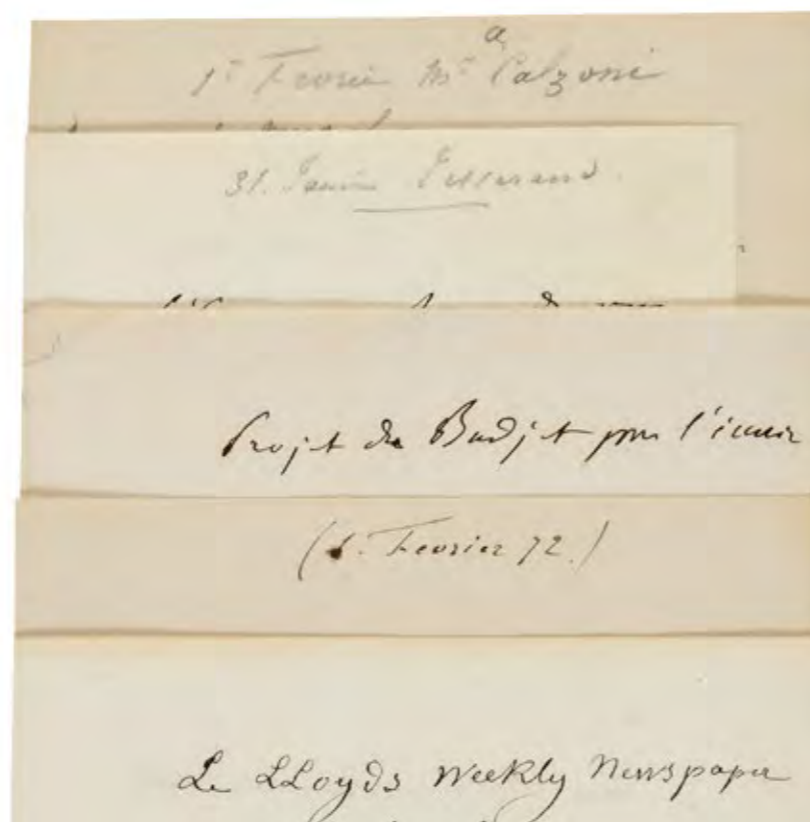 a
1er Fevrier Mr Calzoni
31. Janvier Tisserand.
Projet de Budjet pour l'
(1. Fevrier 72.)
Le LLoyds Weekly Newspaper